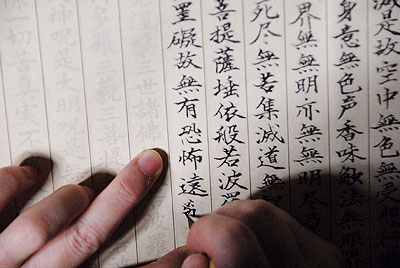 滅是故空中無色無受想行
身意無色声香味触法無眼界
界無無明亦無無明尽乃
死尽無苦集滅道無
菩提薩埵依般若波羅
罣礙故無有恐怖遠
三世諸佛
是大明
一切苦